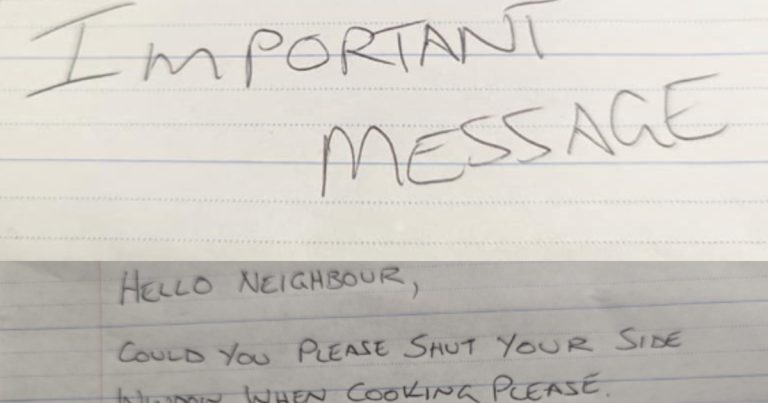 ImPORTANT
MESSAGE
HELLO NEIGHBOUR,
COULD YOU PLEASE SHUT YOUR SIDE
WINDOW WHEN COOKING PLEASE.